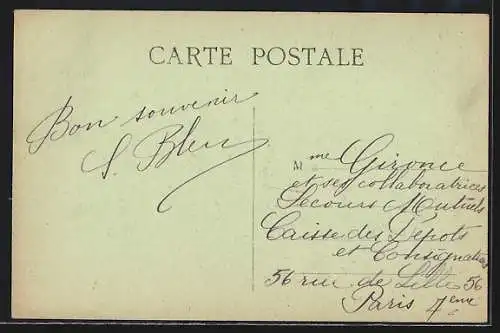 CARTE POSTALE
Bon souvenir
S. Bleu
Mme Gironce
et ses collaboratrices
Secours Mutuels
Caisse des Depots
et Consignations
56 rue de Lille 56
Paris 7eme